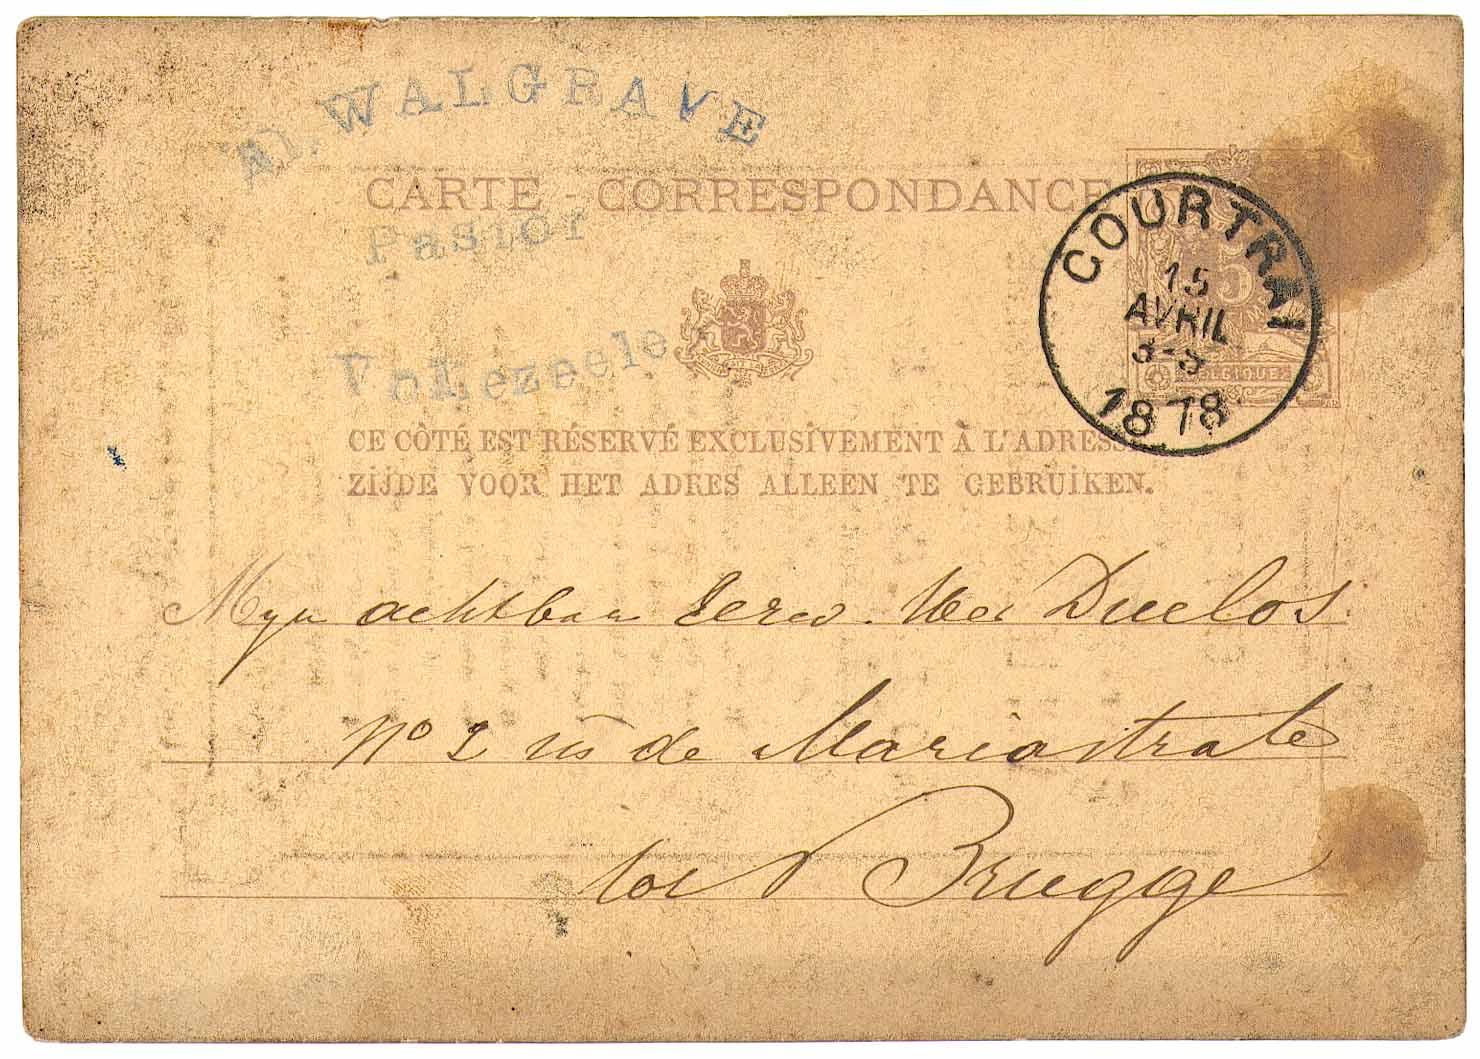 Al. WALGRAVE
CARTE - CORRESPONDANCE
Pastor
COURTRAI
15
AVRIL
1878
5
BELGIQUE
CE CÔTÉ EST RÉSERVÉ EXCLUSIVEMENT À L'ADRESSE
ZIJDE VOOR HET ADRES ALLEEN TE GEBRUIKEN.
Myn achtbaren Eerw. Heer Duclos
No 2 in de Mariastrate
tot Brugge